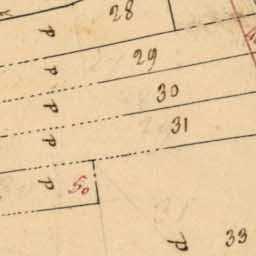 28
P
29
P
30
P
31
P
P 50
P 33